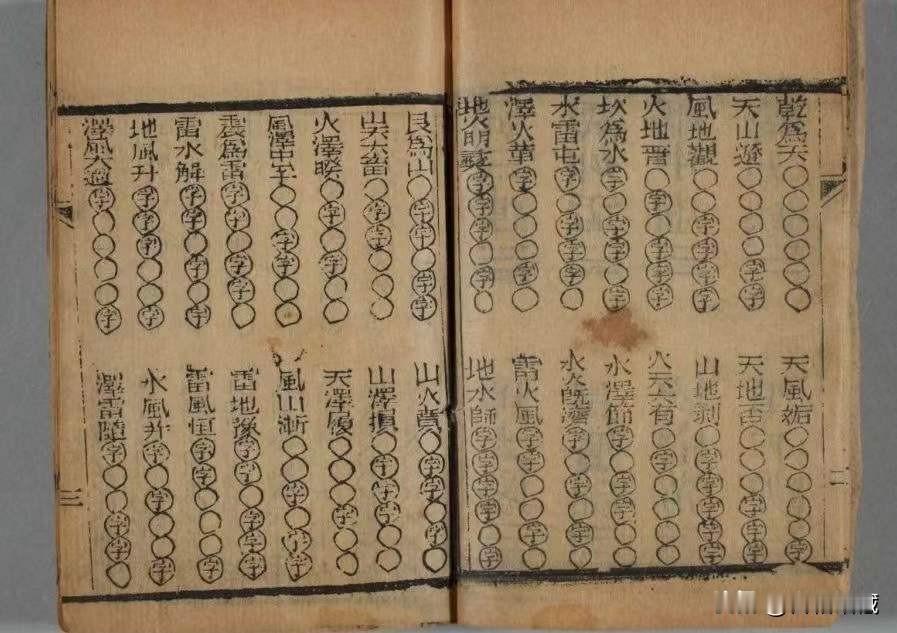 乾為天○○○○○○
天風姤○○○○○字
天山遯○○○○字字
天地否○○○字字字
風地觀○○字字字字
山地剥○字字字字字
火地晋○字○字字字
火天大有○字○○○○
坎為水字○字字○字
水澤節字○字字○○
水雷屯字○字字字○
水火既濟字○字○字○
澤火革字○○○字○
雷火風字字○○字○
地火明夷字字字○字○
地水師字字字字○字
二
艮為山○字字○字字
山火賁○字字○字○
山天大畜○字字○○○
山澤損○字字字○○
火澤睽○字○字○○
天澤履○○○字○○
風澤中孚○○字字○○
風山漸○○字○字字
震為雷字字○字字○
雷地豫字字○字字字
雷水解字字○字○字
雷風恒字字○○○字
地風升字字字○○字
水風井字○字○○字
澤風大過字○○○○字
澤雷隨字○○字字○
三